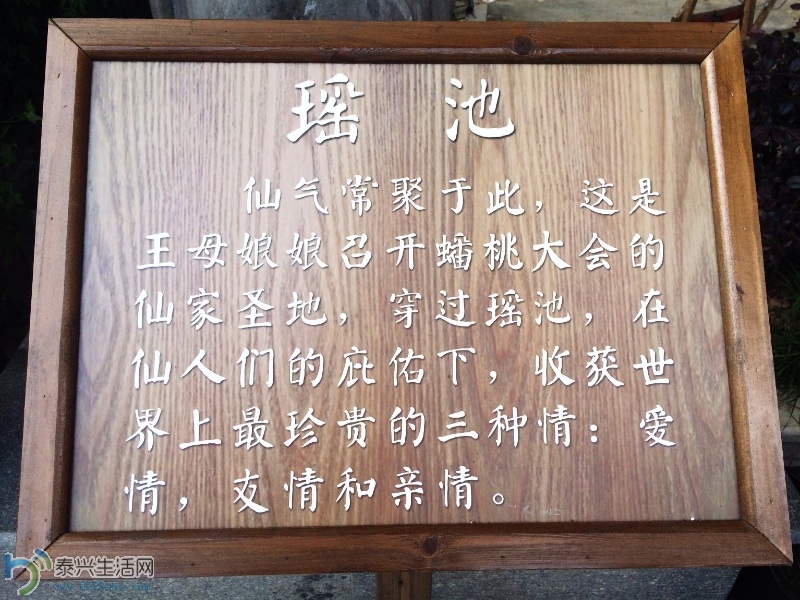 瑶池
仙气常聚于此，这是
王母娘娘召开蟠桃大会的
仙家圣地，穿过瑶池，在
仙人们的庇佑下，收获世
界上最珍贵的三种情：爱
情，友情和亲情。
泰兴生活网